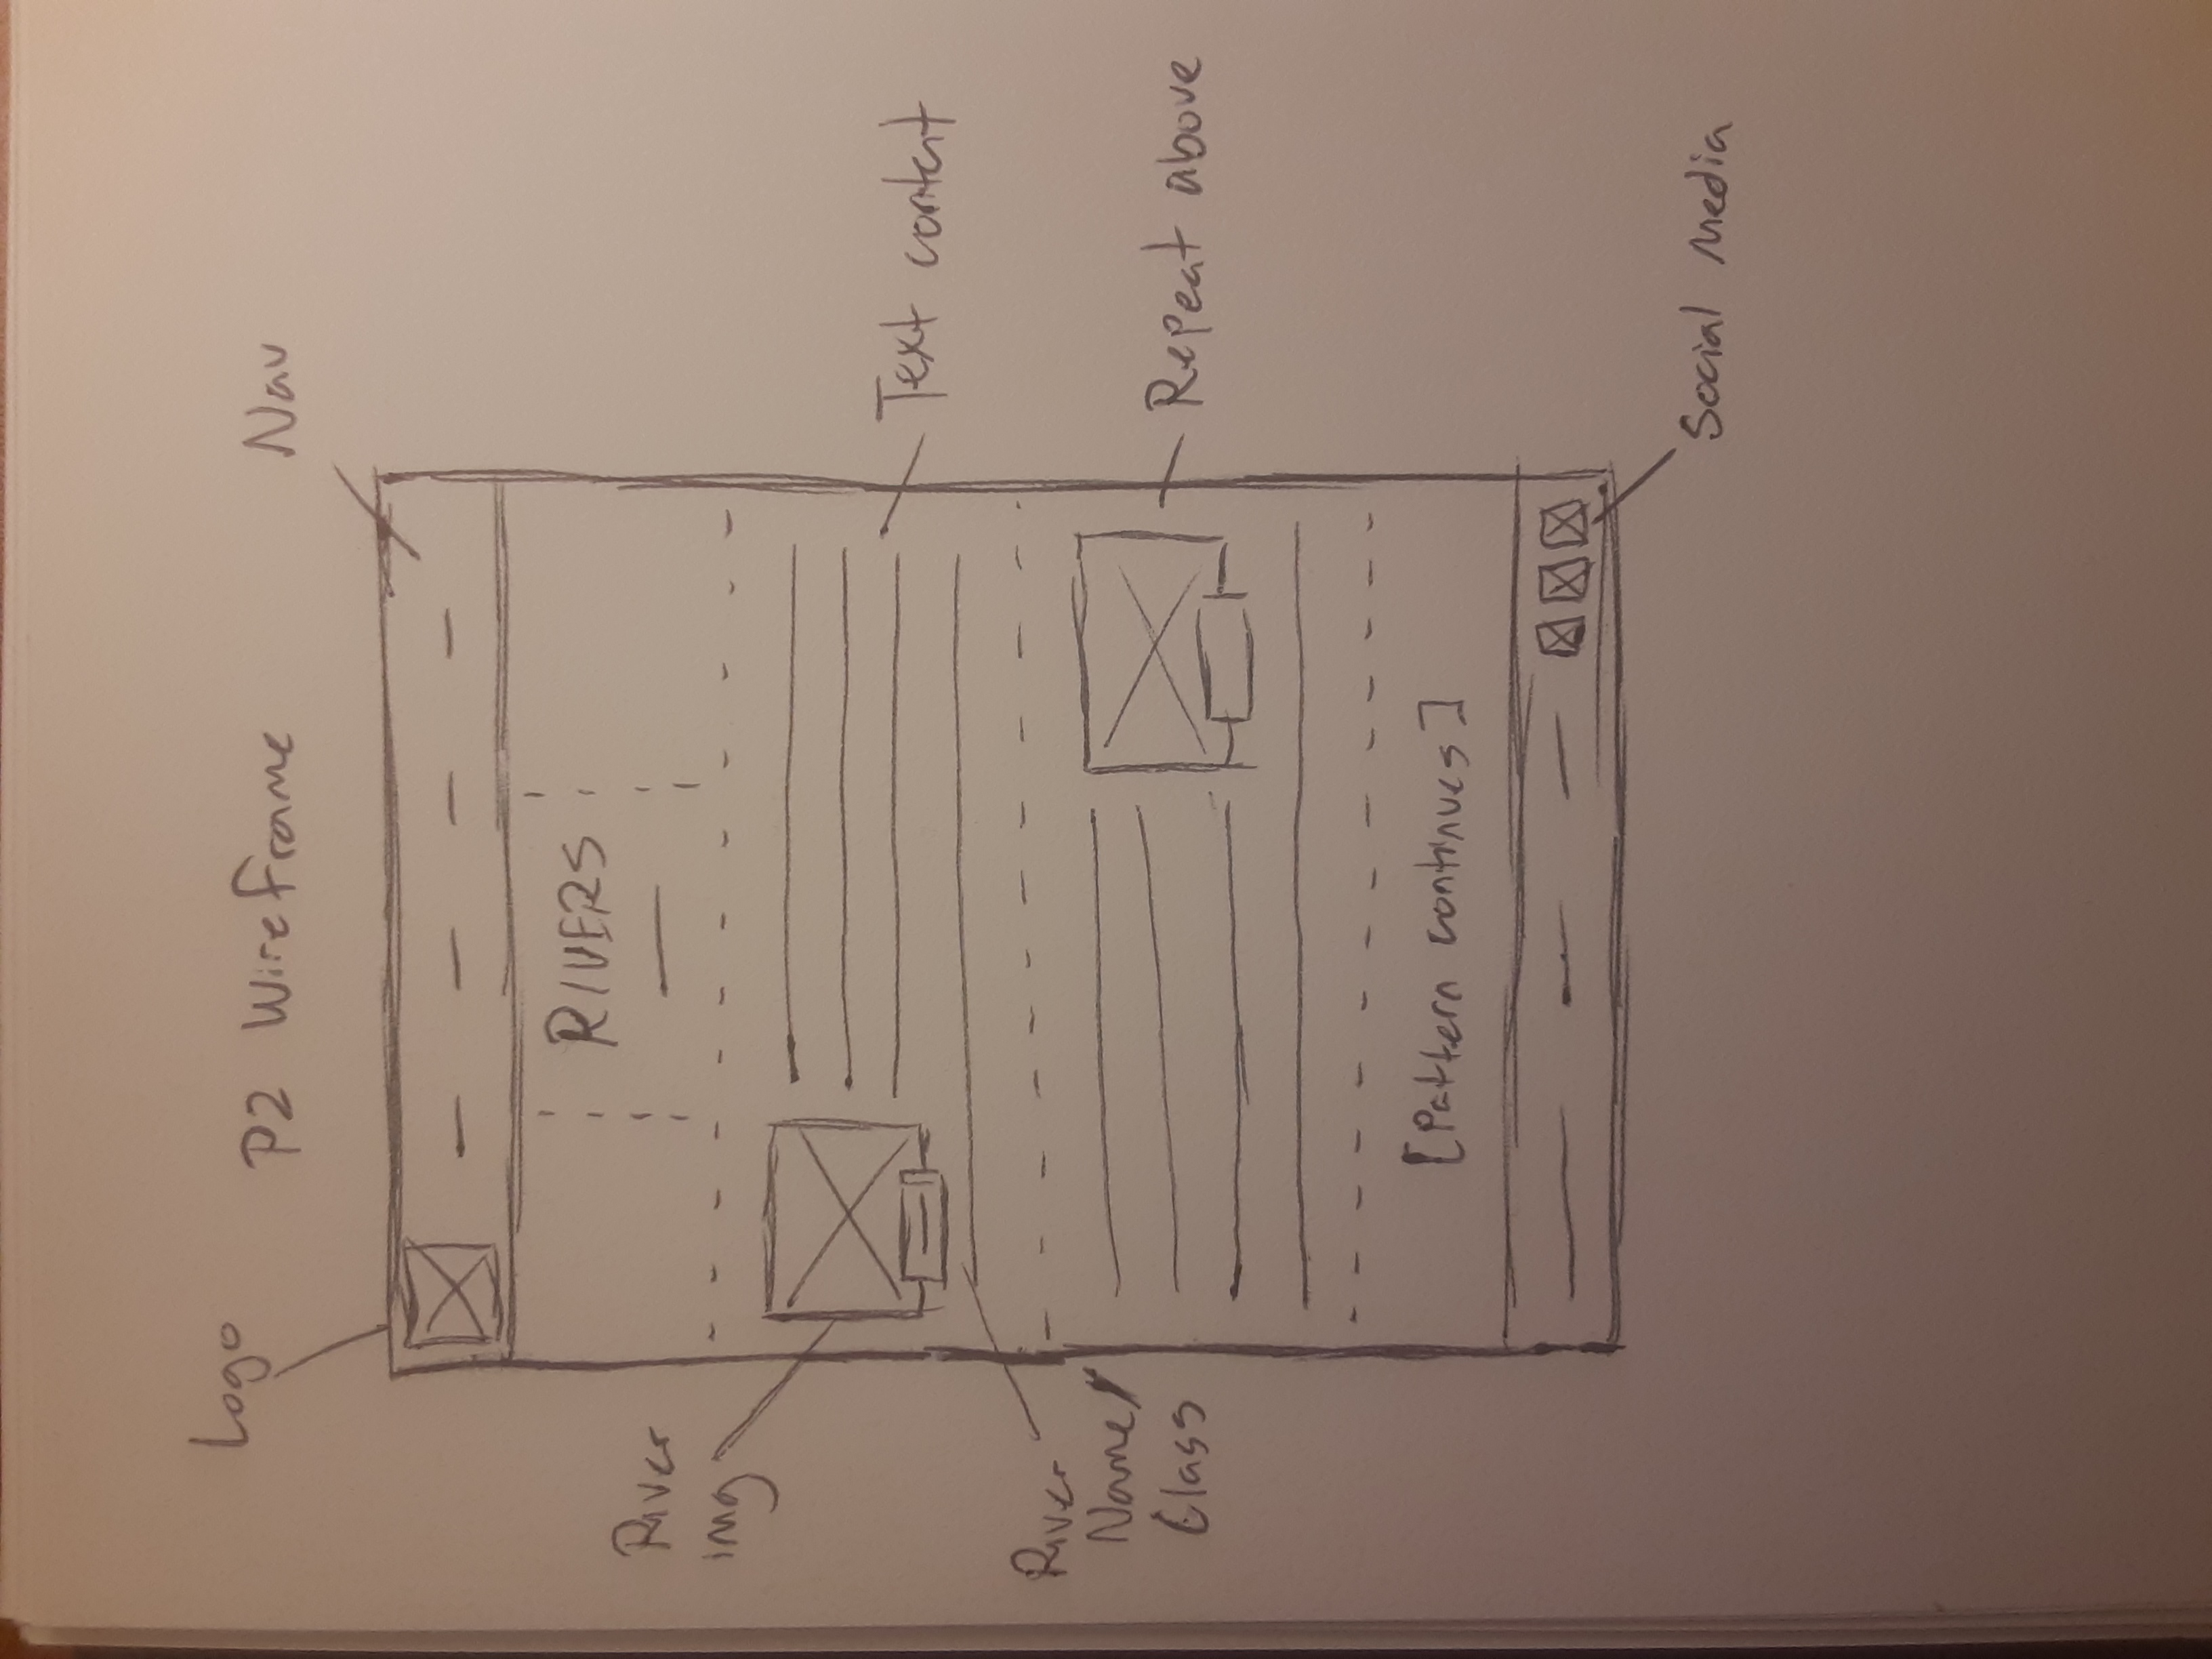 Logo
P2 Wireframe
Nav
RIVERS
River
img
Text content
River
Name/
Class
Repeat above
[Pattern continues]
Social Media